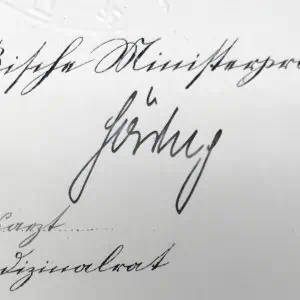 ßische Ministerprä
Göring
arzt
dizinalrat